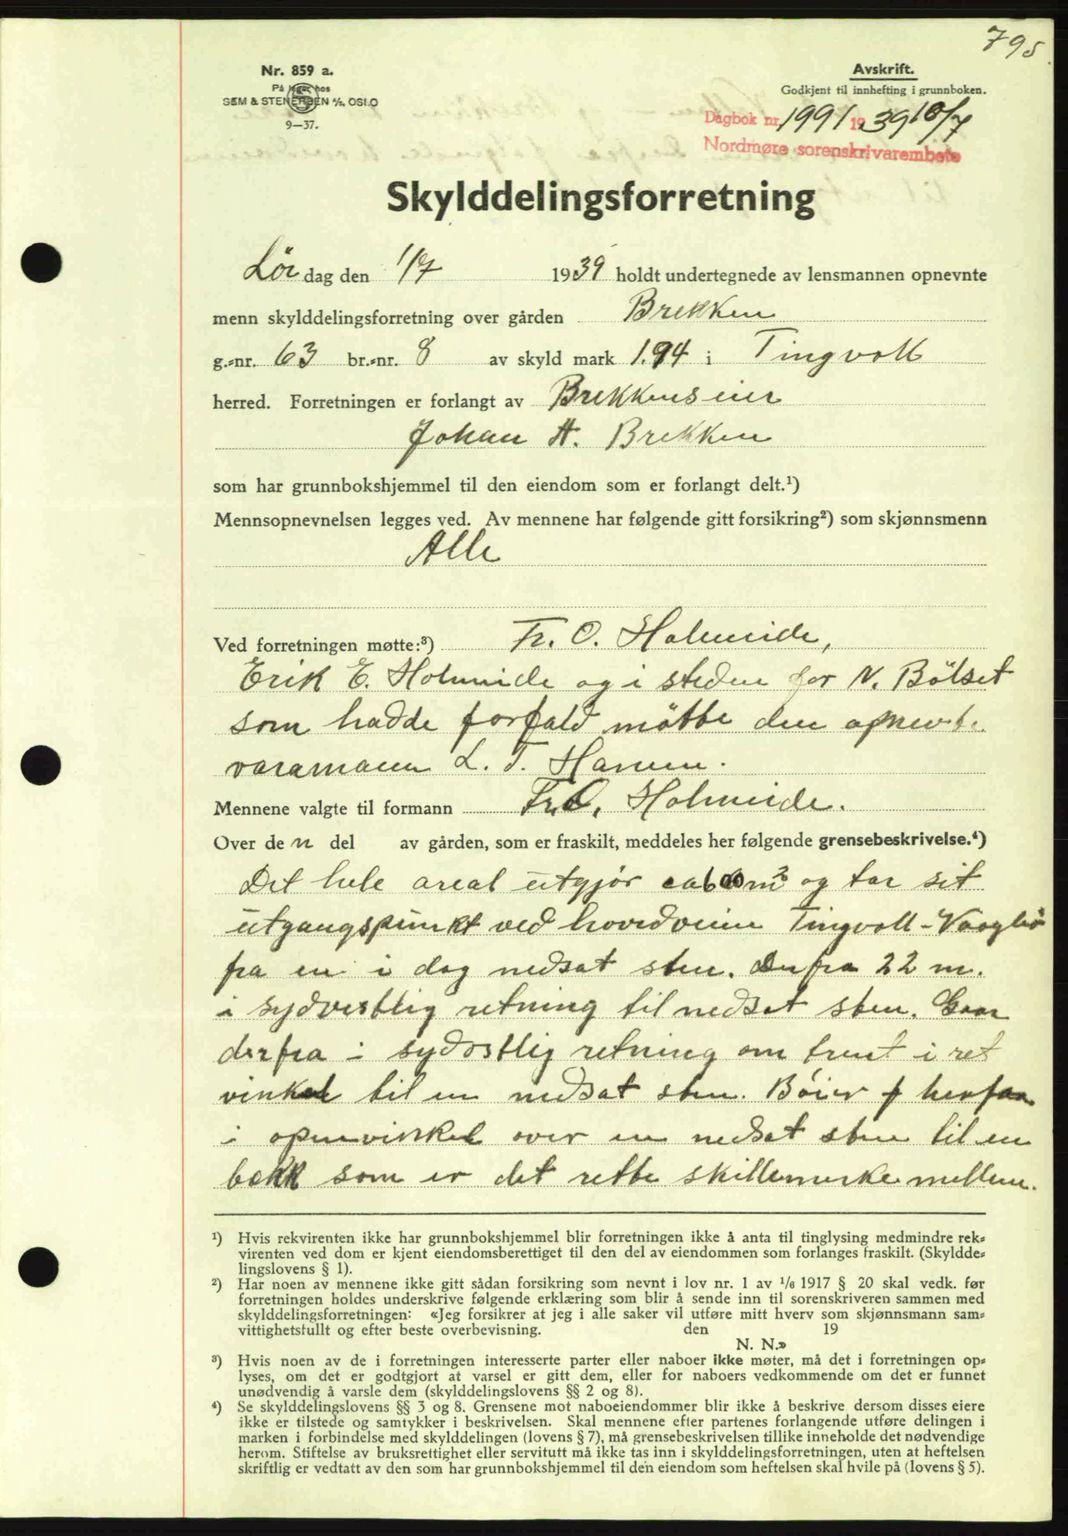 795
Nr. 859 a.
På lager hos
SEM & STENERSEN A/S, OSLO
9—37.
Avskrift.
Godkjent til innhefting i grunnboken.
Dagbok nr. 1991 1939 10/7
Nordmøre sorenskrivarembete
Skylddelingsforretning
Lördag den 1/7 1939 holdt undertegnede av lensmannen opnevnte
menn skylddelingsforretning over gården Brekken
g.-nr. 63 br.-nr. 8 av skyld mark 1.94 i Tingvoll
herred. Forretningen er forlangt av Brekkens eier
Johan H. Brekken
som har grunnbokshjemmel til den eiendom som er forlangt delt.¹)
Mennsopnevnelsen legges ved. Av mennene har følgende gitt forsikring²) som skjønnsmenn
Alle
Ved forretningen møtte:³) Fr. O. Holmeide,
Erik E. Holmeide og i steden for N. Bölset
som hadde forfald møtte den opnevnte
varamann L. T. Hanem.
Mennene valgte til formann Fr. O. Holmeide.
Over den del av gården, som er fraskilt, meddeles her følgende grensebeskrivelse.⁴)
Det hele areal utgjør ca 600 m² og tar sit
utgangspunkt ved hovedveien Tingvoll-Vaagbö
fra en i dag nedsat sten. Derfra 22 m.
i sydvestlig retning til nedsat sten. Gaar
derfra i sydostlig retning om trent i ret
vinkel til en nedsat sten. Böier herfra
i open vinkel over en nedsat sten til en
bekk som er det rette skillemerke mellem.
¹) Hvis rekvirenten ikke har grunnbokshjemmel blir forretningen ikke å anta til tinglysing medmindre rek-
virenten ved dom er kjent eiendomsberettiget til den del av eiendommen som forlanges fraskilt. (Skyldde-
lingslovens § 1).
²) Har noen av mennene ikke gitt sådan forsikring som nevnt i lov nr. 1 av 1/6 1917 § 20 skal vedk. før
forretningen holdes underskrive følgende erklæring som blir å sende inn til sorenskriveren sammen med
skylddelingsforretningen: «Jeg forsikrer at jeg i alle saker vil utføre mitt hverv som skjønnsmann sam-
vittighetsfullt og efter beste overbevisning. den 19
N. N.»
³) Hvis noen av de i forretningen interesserte parter eller naboer ikke møter, må det i forretningen op-
lyses, om det er godtgjort at varsel er gitt dem, eller for naboers vedkommende om det er funnet
unødvendig å varsle dem (skylddelingslovens §§ 2 og 8).
⁴) Se skylddelingslovens §§ 3 og 8. Grensene mot naboeiendommer blir ikke å beskrive dersom disses eiere
ikke er tilstede og samtykker i beskrivelsen. Skal mennene efter partenes forlangende utføre delingen i
marken i forbindelse med skylddelingen (lovens § 7), må grensebeskrivelsen tillike inneholde det nødvendige
herom. Stiftelse av bruksrettighet eller servitutt må ikke tas inn i skylddelingsforretningen, uten at heftelsen
skriftlig er vedtatt av den som har grunnbokshjemmel til den eiendom som heftelsen skal hvile på (lovens § 5).